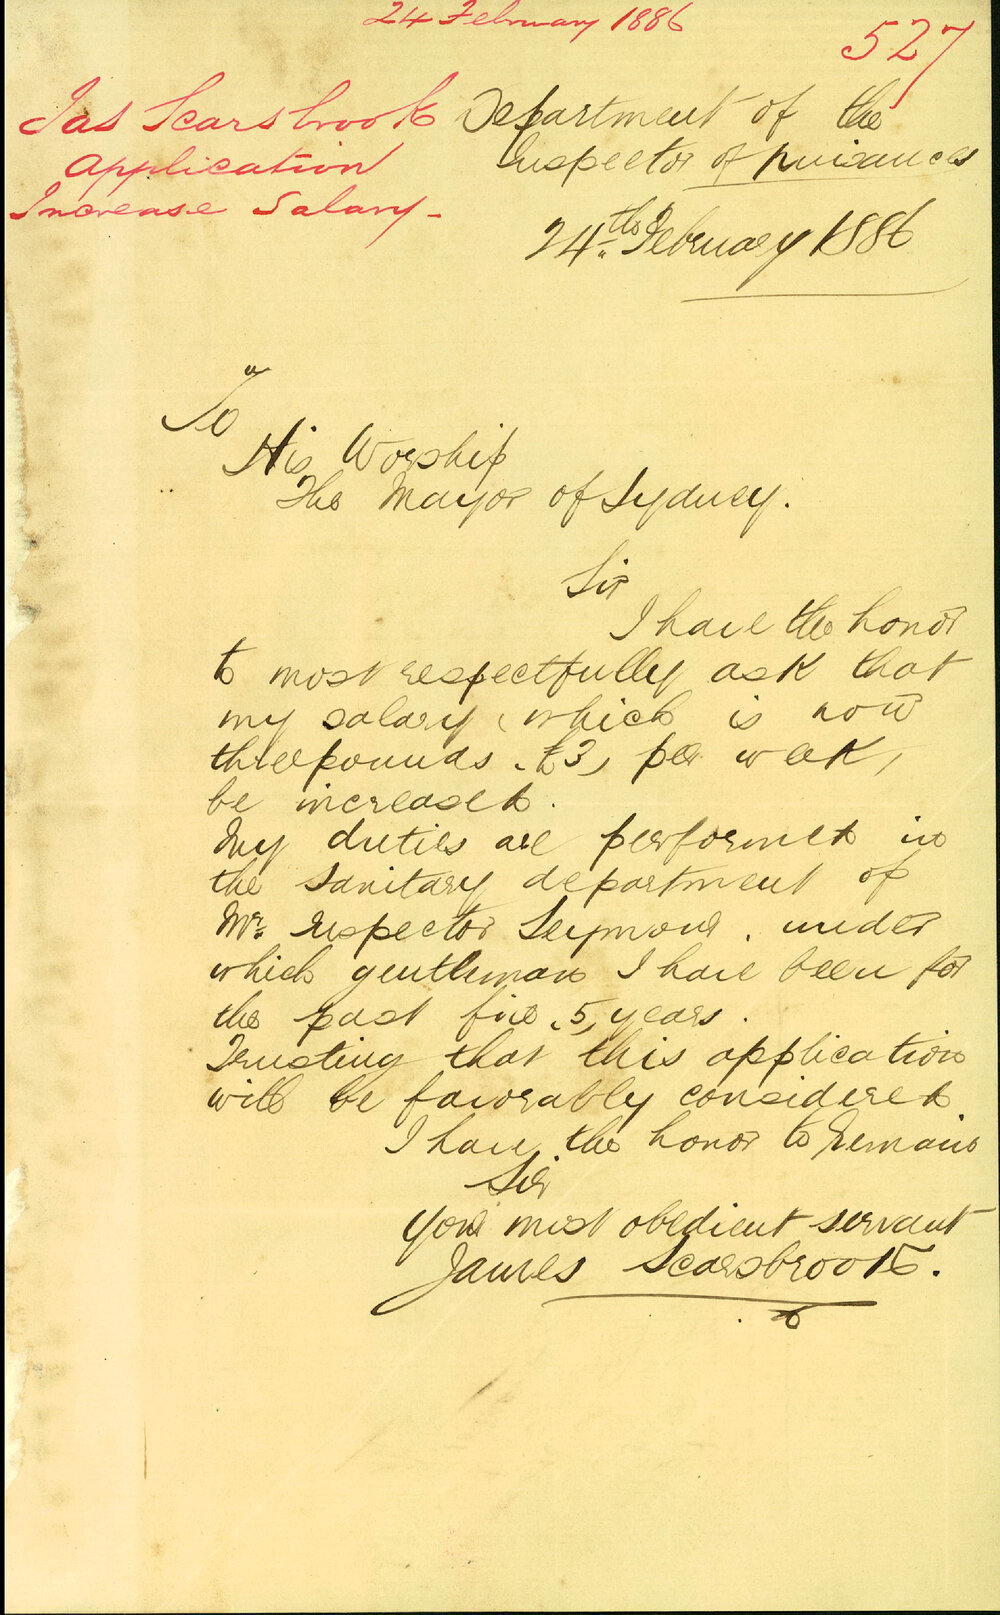 24 February 1886
527
Jas Scarsbrook
Application
Increase Salary -
Department of the
Inspector of nuisances
24th. February 1886
To
His Worship
The Mayor of Sydney.
Sir
I have the honor
to most respectfully ask that
my salary, which is now
three pounds, £3, per week,
be increased.
My duties are performed in
the sanitary department of
Mr. Inspector Seymour, under
which gentleman I have been for
the past five, 5, years.
Trusting that this application
will be favorably considered.
I have the honor to remain
Sir
your most obedient servant
James Scarsbrook.